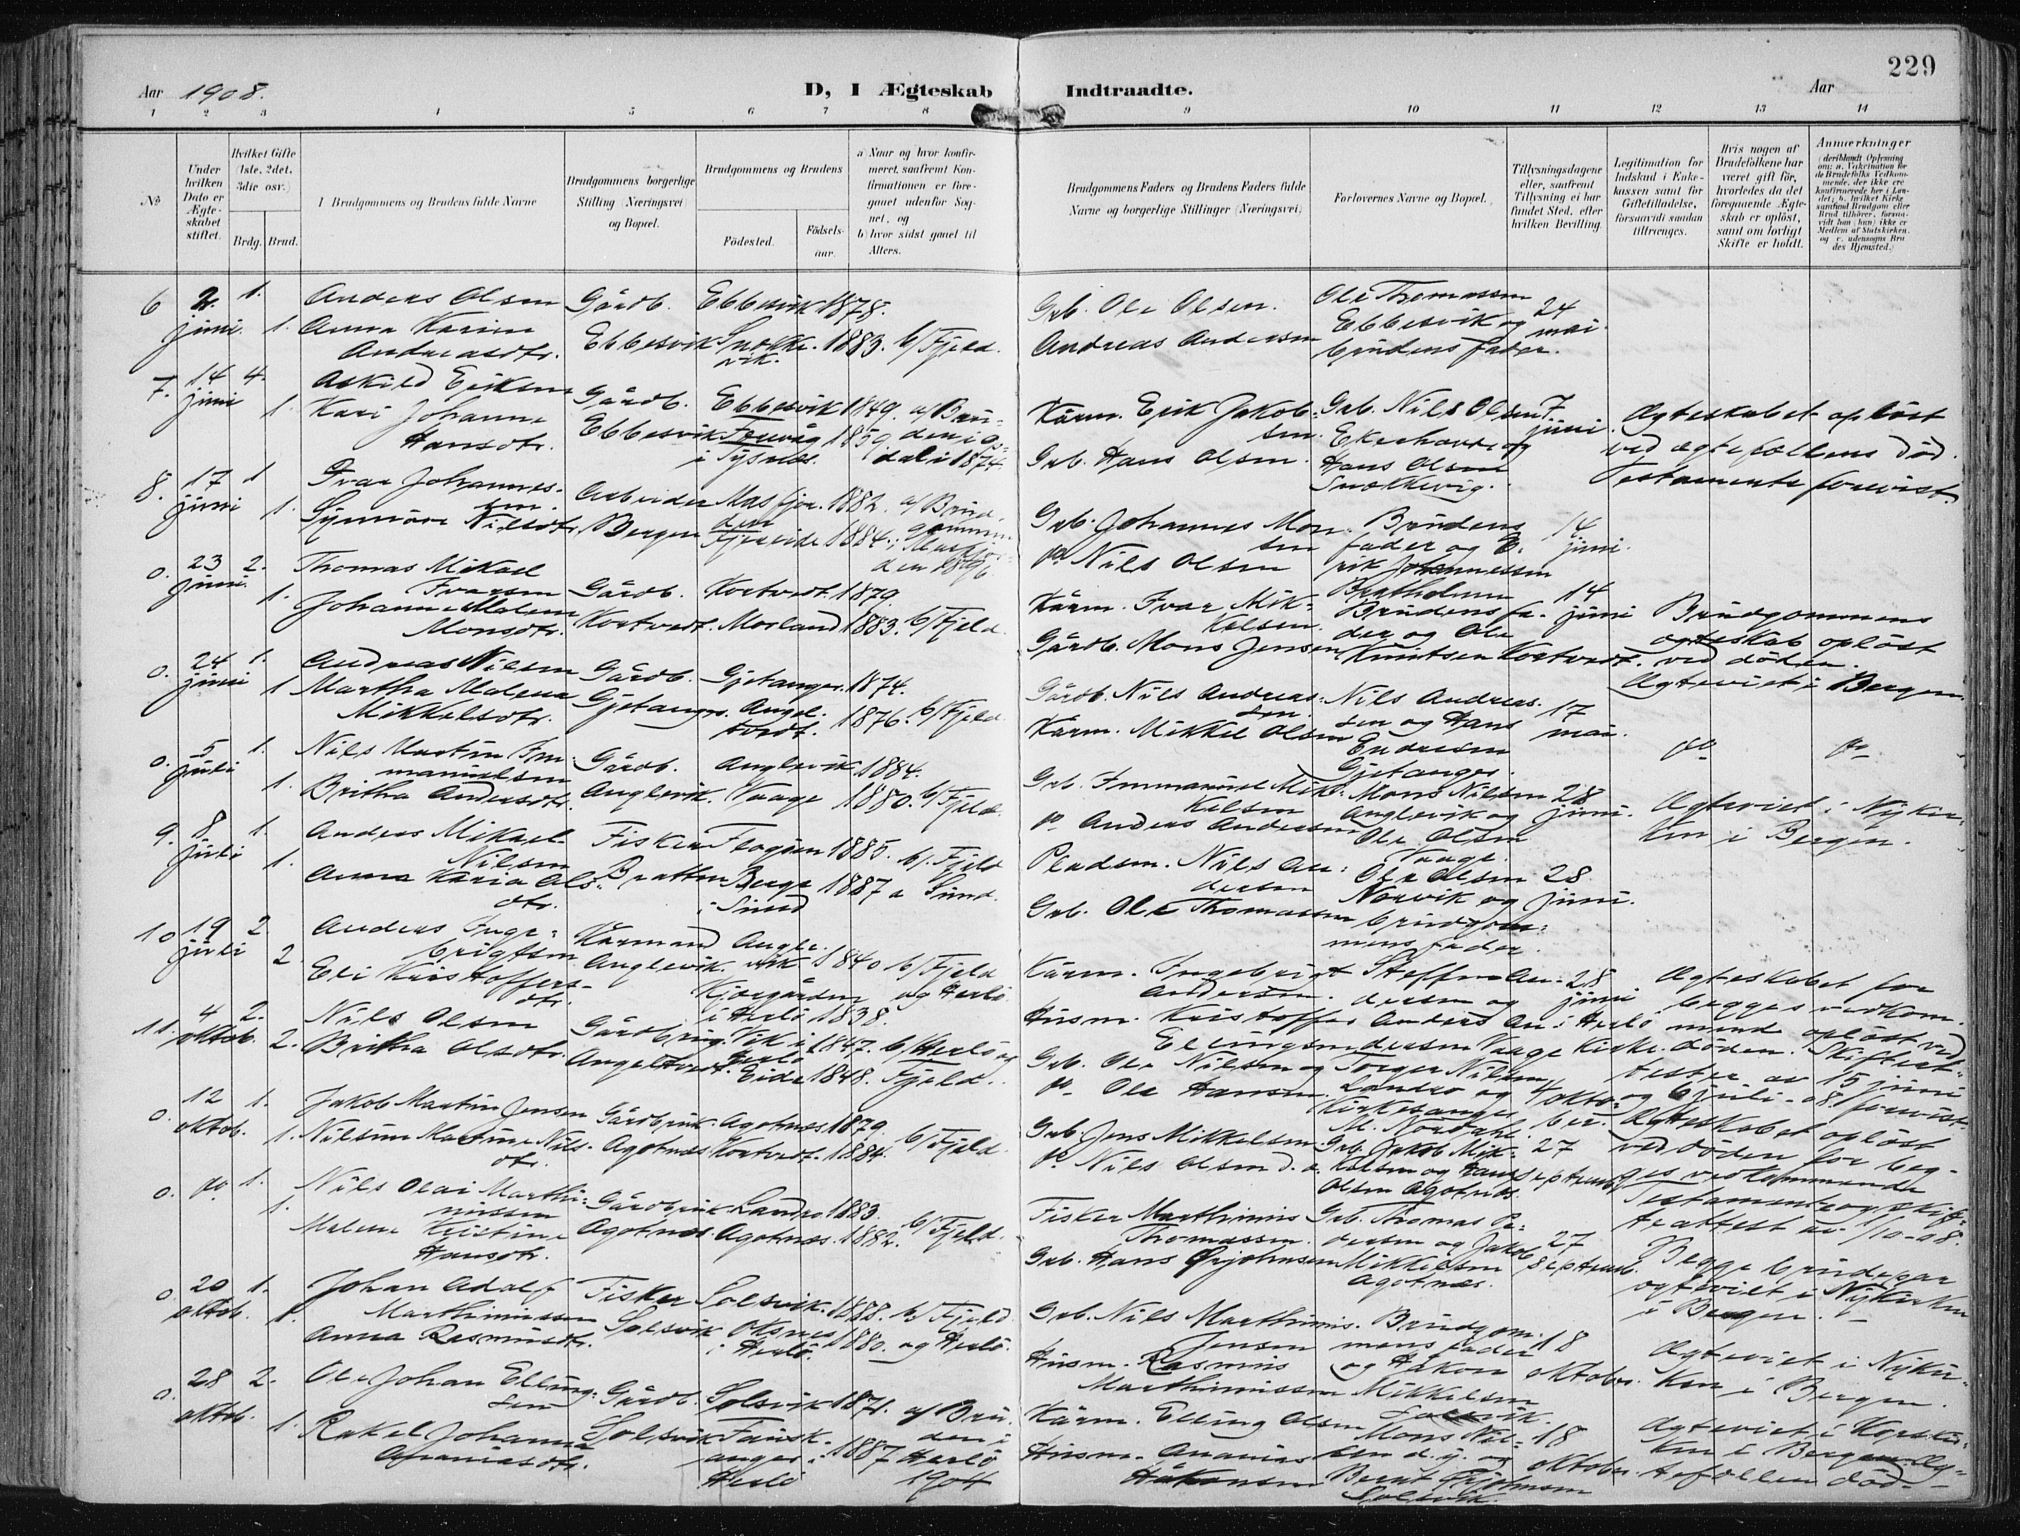 229
Aar 1908.
D, I Ægteskab Indtraadte.
Aar
1 2 3 4 5 6 7 8 9 10 11 12 13 14
No
Under hvilken Dato er Ægteskabet stiftet.
Hvilket Gifte (1ste, 2det, 3die osv.)
Brdg. Brud.
I Brudgommens og Brudens fulde Navne
Brudgommens borgerlige Stilling (Næringsvei) og Bopæl.
Brudgommens og Brudens
Födested.
Födselsaar.
a) Naar og hvor konfirmeret, saafremt Konfirmationen er foregaaet udenfor Sognet, og
b) hvor sidst gaaet til Alters.
Brudgommens Faders og Brudens Faders fulde Navne og borgerlige Stillinger (Næringsvei)
Forlovernes Navne og Bopæl.
Tillysningsdagene eller, saafremt Tillysning ei har fundet Sted, efter hvilken Bevilling.
Legitimation for Indskud i Enkekassen samt for Giftetilladelse, forsaavidt saadan tiltrænges.
Hvis nogen af Brudefolkene har været gift før, hvorledes da det foregaaende Ægteskab er opløst, samt om lovligt Skifte er holdt.
Anmerkninger
6 2 juni 1. 1.
Anders Olsen
Anna Karine
Andreasdtr.
Gårdb.
Ebbesvik
Ebbesvik 1878.
Snekkevik. 1883. b/ Fjeld.
Grb. Ole Olsen.
Andreas Andersen
Ole Thomassen
Ebbesvik og
brudens fader.
24 mai.
7. 14 juni 4. 1.
Askild Eriksen
Kari Johanne
Hansdtr.
Gårdb.
Ebbesvik
Ebbesvik 1849. a/ Bruden i
i Tysnes. 1859
1874.
Kårm. Erik Jakobsen.
Grb. Hans Olsen.
Grb. Nils Olsen
Ekerhovd og
Hans Olsen
7. juni.
Ægteskabet opløst
ved ægtefællens død.
Testamente forevist.
8. 17 juni 1 1.
Ivar Johannessen.
Synnöve Nilsdtr.
Arbeider
Bergen
Masfjorden 1882. a/ Brudgommen
1884. i Masfjorden 1896
Grb. Johannes Monsen
do Nils Olsen
Brudens
fader og Erik Johannessen
Bratholmen
14. juni.
0. 23 juni. 2. 1.
Thomas Mikael
Ivarsen
Johanne Malene
Monsdtr.
Gårdb.
Kortvedt.
Kortvedt. 1879.
Morland 1883. b/ Fjeld.
Kårm. Ivar Mikkelsen.
Gårdb. Mons Jensen
Brudens fader og Ole
Knutsen Kortvedt.
14 juni
Brudgommens
ægteskab opløst
ved døden.
Ægteviet i Bergen.
0. 24 juni 1. 1
Andreas Nilsen
Martha Malena
Mikkelsdtr.
Gårdb.
Gjetanger.
Gjetanger 1874.
Angeltvedt. 1876. b/ Fjeld.
Gårdb. Nils Andreassen.
Kårm. Mikkel Olsen
Nils Andreassen og Hans
Endresen
Gjetanger.
17 mai.
do do
0. 5 juli 1. 1.
Nils Martin Immanuelsen
Britha Andersdtr.
Gårdb.
Anglevik.
Anglevik 1884.
Vaage 1880. b/ Fjeld.
Grb. Immanuel Mikkelsen
do Anders Andersen
Mons Nilsen
Anglevik og
Ole Olsen
Vaage.
28 juni.
Ægteviet i Nykirken i Bergen.
9. 8 juli 1. 1.
Anders Mikael
Nilsen
Anna Karia Olsdtr.
Fisker
Bratten
1885. b/. Fjeld
Berge i Sund 1887 a Sund.
Pladsm. Nils Andersen
Grb. Ole Thomassen
Ole Olsen
Norvik og
brudgommens fader.
28 juni.
10 19 juli 2. 2.
Anders Ingebrigtsen
Eli Kristoffersdtr.
Kårmand
Anglevik.
Anglevik 1840 b/ Fjeld
i Herlö 1838. og Herlö
Kårm. Ingebrigt
Andersen.
Husm. Kristoffer
Ellingsen
Steffen Andersen og
Anders Andersen Vaage
28 juni
i Herlö
Kirke.
Ægteskabet for
begges vedkommende opløst ved
døden. Skifteattester av 15 juni
og 6 juli - 08 forevist.
11. 4 oktob. 2. 2.
Nils Olsen
Britha Olsdtr.
Gårdbrug.
Angeltvedt.
Vik i Herlö 1847. b/ Herlö og
Eide 1848. Fjeld.
Grb. Ole Nilsen og
do- Ole Hansen.
Torger Nilsen
Landro og
Kirkesanger
M. Nordahl.
4 oktober.
Ægteskabet opløst
ved døden for begges vedkommende
Testamente og skifteattest av 1/10-08.
0. 12 oktob. 1. 1.
Jakob Martin Jensen
Nilsine Martine Nilsdtr.
Gårdbruk.
Agotnæs
Agotnæs 1879
Kortvedt. 1884. b/ Fjeld.
Grb. Jens Mikkelsen
do Nils Olsen
Grb. Jakob Mikkelsen og Hans
Olsen Agotnæs.
27 septemb.
0. do 1. 1.
Nils Olai Marthinussen
Malene Kristine
Hansdtr.
Gårdbruk
Agotnæs
Landro 1883.
Agotnæs. 1882. b/ Fjeld.
Fisker Marthinus
Thomassen.
Grb. Hans Ørjohnsen
Grb. Thomas Pedersen og Jakob
Mikkelsen
Agotnæs.
27 septemb.
Begge brudepar
ægteviet i Nykirken
i Bergen.
0. 20 oktob. 1. 1.
Johan Adolf
Marthinussen
Anna Rasmusdtr.
Fisker
Solsvik
Solsvik. 1888. b/ Fjeld
i Herlö. 1880. og Herlö.
Grb. Nils Marthinus
Jensen
Husm. Rasmus
Marthinussen
Brudgommens fader
og Håkon
Mikkelsen
Solsvik.
18 oktober.
Ægteviet i Nykirken i Bergen.
0. 28 oktob. 2. 1.
Ole Johan Ellingsen
Rakel Johanna
Ananiasdtr.
Gårdb.
Solsvik
Solsvik 1871. a/ Bruden i
Herlö 1887 Herlö
1904
Kårm. Elling Olsen
Husm. Ananias
Håkonsen
Mons Nilsen d.y. og
Bernt Ørjohnsen
Solsvik.
18 oktober.
Ægteviet i Korskirken i Bergen. Ægtefællen død.